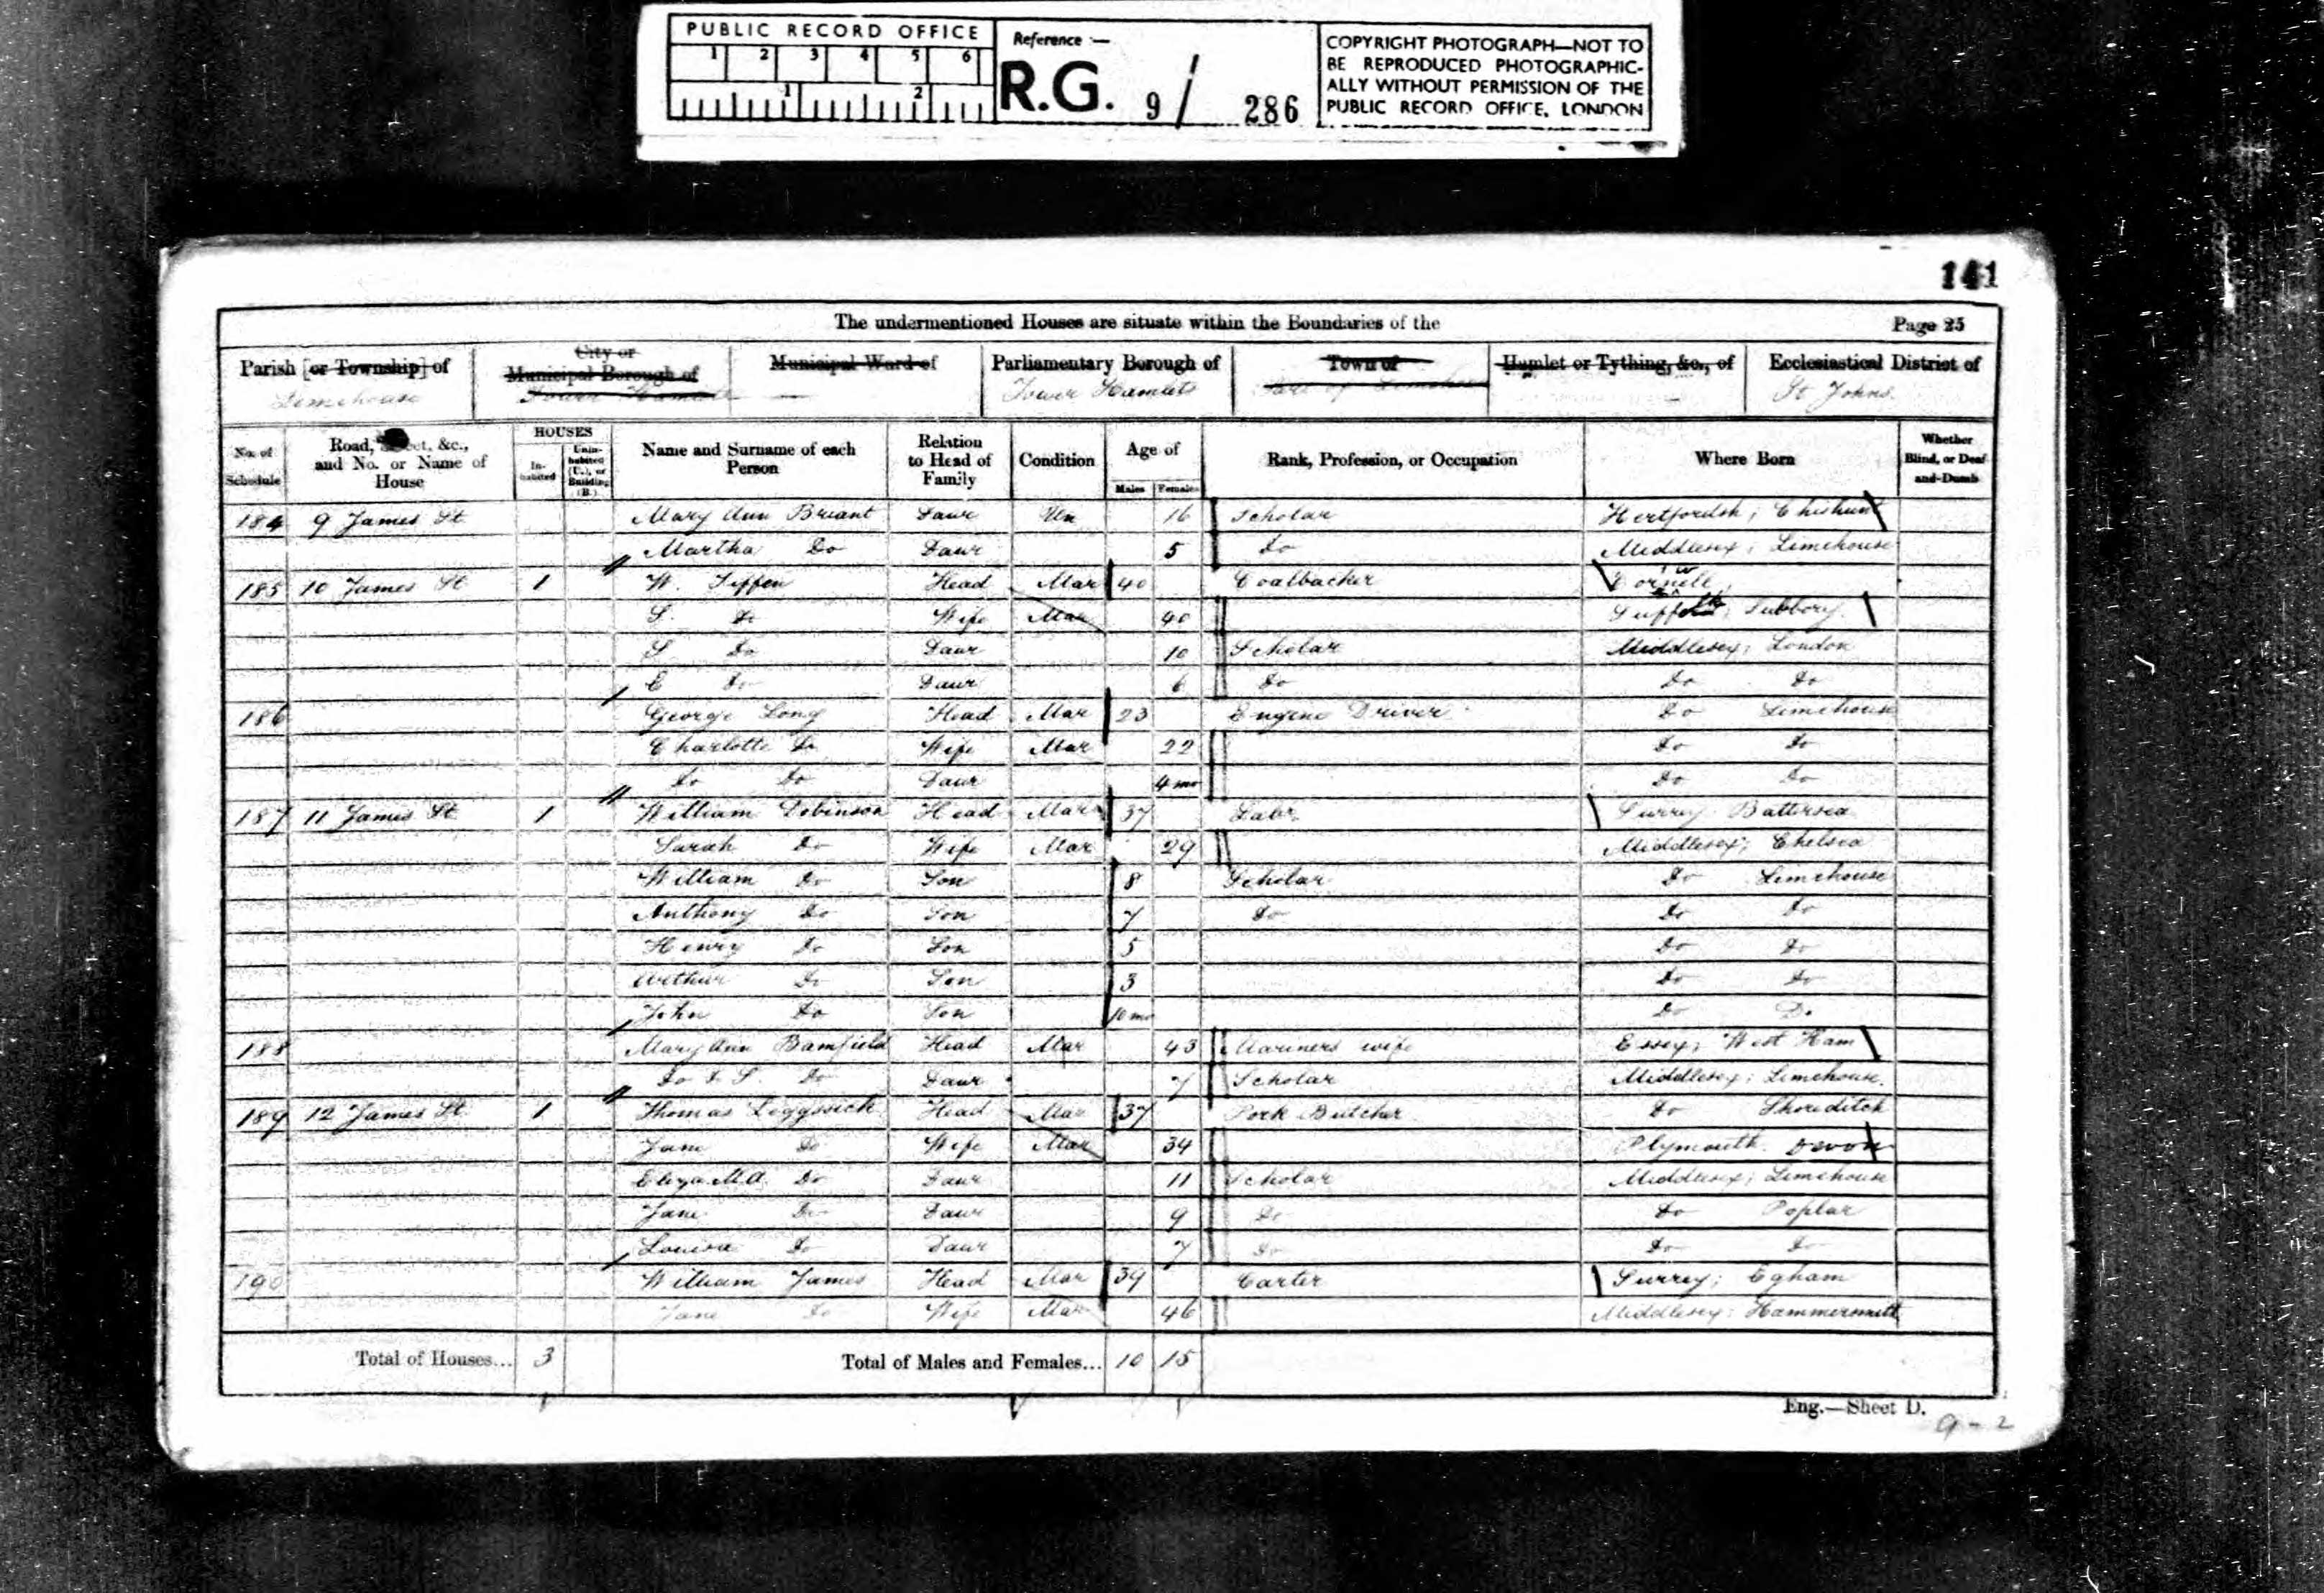 PUBLIC RECORD OFFICE
1 2 3 4 5 6
1 2
Reference :—
R.G. 9 / 286
COPYRIGHT PHOTOGRAPH—NOT TO
BE REPRODUCED PHOTOGRAPHIC-
ALLY WITHOUT PERMISSION OF THE
PUBLIC RECORD OFFICE, LONDON
141
The undermentioned Houses are situate within the Boundaries of the Page 25
Parish [or Township] of Limehouse
City or Municipal Borough of Tower Hamlets
Municipal Ward of —
Parliamentary Borough of Tower Hamlets
Town of Part of Limehouse
Hamlet or Tything, &c., of —
Ecclesiastical District of St Johns
No. of Schedule
Road, Street, &c., and No. or Name of House
HOUSES
In-habited
Unin-habited (U.), or Building (B.)
Name and Surname of each Person
Relation to Head of Family
Condition
Age of
Males Females
Rank, Profession, or Occupation
Where Born
Whether Blind, or Deaf-and-Dumb
184 9 James St Mary Ann Briant Daur Un 16 Scholar Hertfordsh; Chishunt
Martha Do Daur 5 Do Middlesex; Limehouse
185 10 James St 1 W. Tiffen Head Mar 40 Coalbacker Cornwell
S. Do Wife Mar 40 Suffolk; Subbory
S Do Daur 10 Scholar Middlesex; London
E Do Daur 6 Do Do Do
186 George Long Head Mar 23 Engine Driver Do Limehouse
Charlotte Do Wife Mar 22 Do Do
Do Do Daur 4 mo Do Do
187 11 James St 1 William Dobinson Head Mar 37 Labr Surrey Battersea
Sarah Do Wife Mar 29 Middlesex; Chelsea
William Do Son 8 Scholar Do Limehouse
Anthony Do Son 7 Do Do Do
Henry Do Son 5 Do Do
Arthur Do Son 3 Do Do
John Do Son 10 mo Do Do
188 Mary Ann Bamfield Head Mar 43 Mariners wife Essex; West Ham
Do Do Daur 7 Scholar Middlesex; Limehouse
189 12 James St 1 Thomas Leggssick Head Mar 37 Pork Butcher Do Shoreditch
Jane Do Wife Mar 34 Plymouth Devon
Eliza M.A. Do Daur 11 Scholar Middlesex; Limehouse
Jane Do Daur 9 Do Do Poplar
Louisa Do Daur 7 Do Do Do
190 William James Head Mar 39 Carter Surrey; Egham
Jane Do Wife Mar 46 Middlesex; Hammersmith
Total of Houses... 3 Total of Males and Females... 10 15
Eng.—Sheet D.
9-2